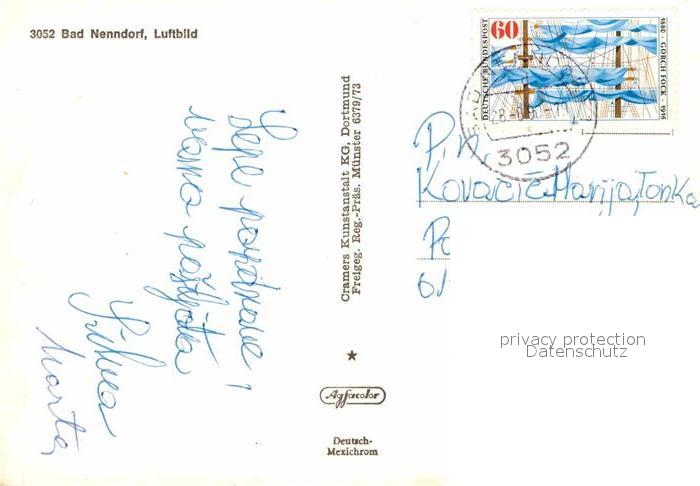 3052 Bad Nenndorf, Luftbild
Lepe pozdrave!
vama pošiljata
Silva
Marta,
Cramers Kunstanstalt KG, Dortmund
Freigeg. Reg.-Präs. Münster 6379/73
Agfacolor
Deutsch-
Mexichrom
60
DEUTSCHE BUNDESPOST
1880 · GORCH FOCK · 1916
3052
P.n.
Kovačič Marija, Tonka
privacy protection
Datenschutz